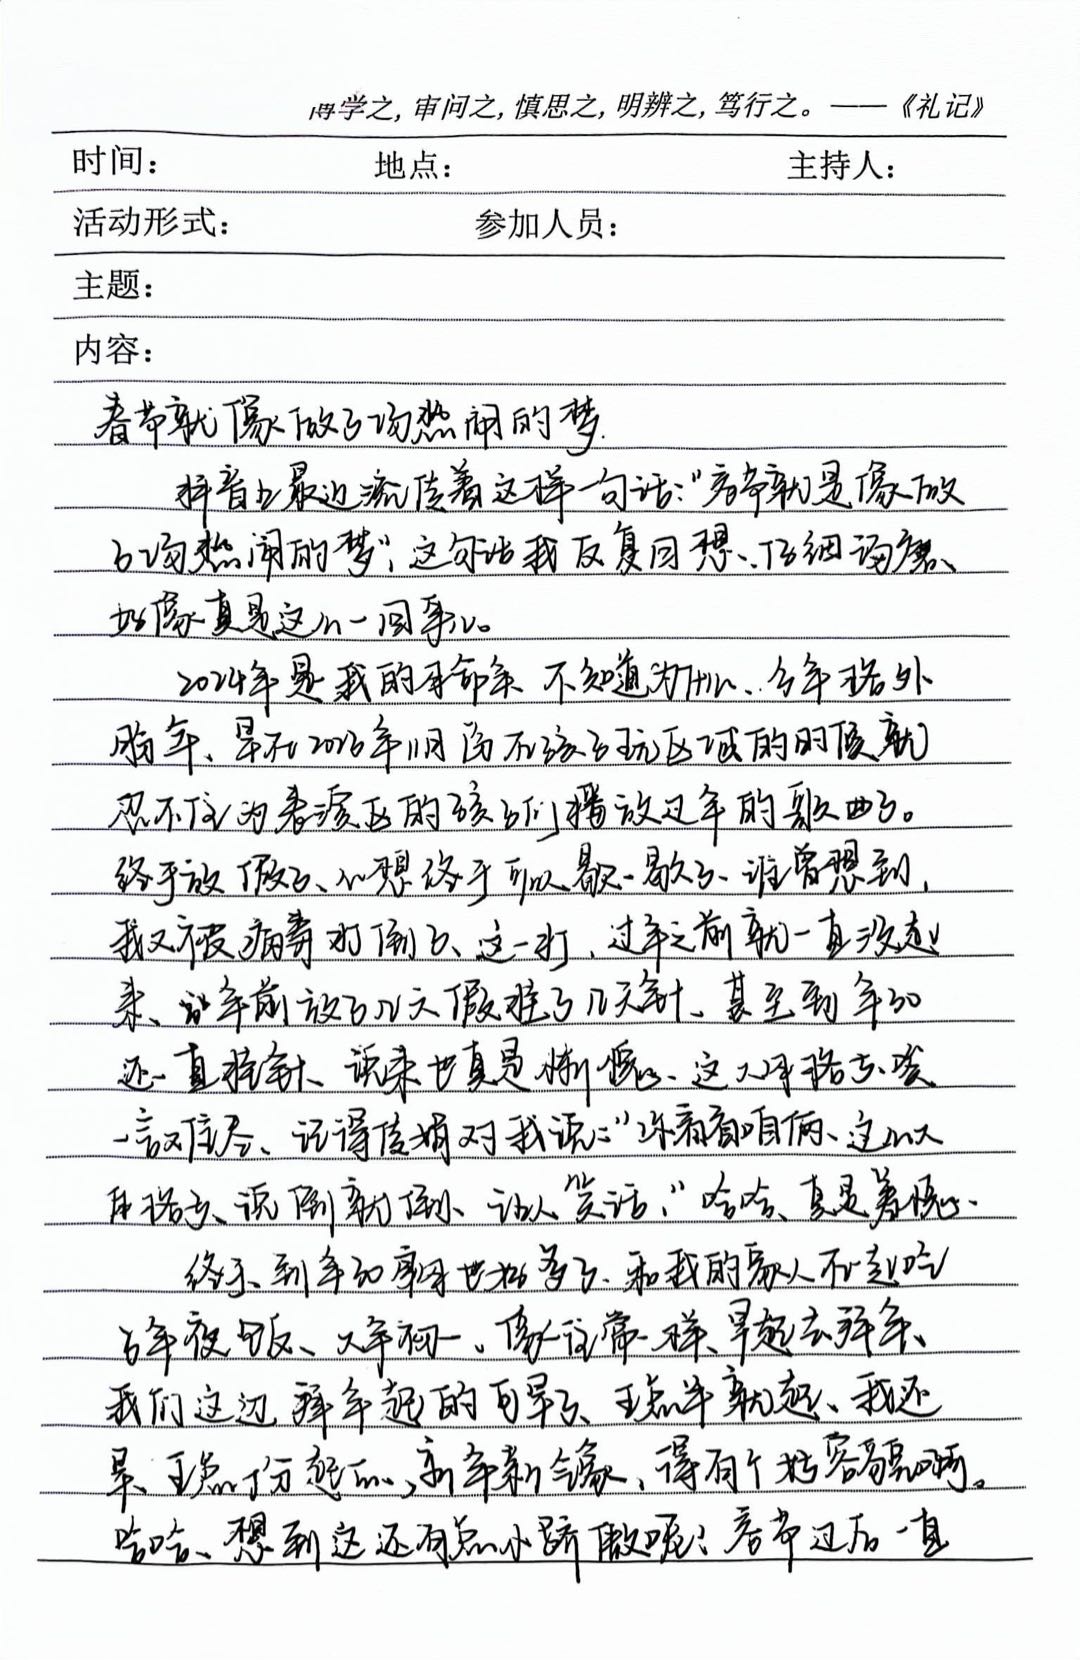 博学之，审问之，慎思之，明辨之，笃行之。——《礼记》
时间： 地点： 主持人：
活动形式： 参加人员：
主题：
内容：
春节就像做了场热闹的梦.
抖音上最近流传着这样一句话：“春节就是像做
了场热闹的梦”，这句话我反复回想、仔细琢磨、
好像真是这么一回事儿。
2024年是我的本命年 不知道为什么、今年格外
盼年、早在2023年11月份在孩子玩区域的时候就
忍不住为表演区的孩子们播放过年的歌曲了。
终于放假了、心想终于可以歇一歇了、谁曾想到，
我又被病毒打倒了、这一打，过年之前就一直没起
来、年前放了几天假挂了几天针、甚至到年30
还一直挂针、说来也真是惭愧、这人
一言难尽、记得 对我说：“你看看咱俩、这么大
、说倒就倒、让人笑话，”哈哈、真是羞愧、
终于、到年30 也好多了、和我的家人在一起吃
了年夜饭、大年初一、像往常一样、早起去拜年、
我们这边拜年起的可早了、五点半就起、我还
早、五点 分起的，新年新气象，得有个好容貌啊。
哈哈、想到这还有点小骄傲呢！春节过后一直